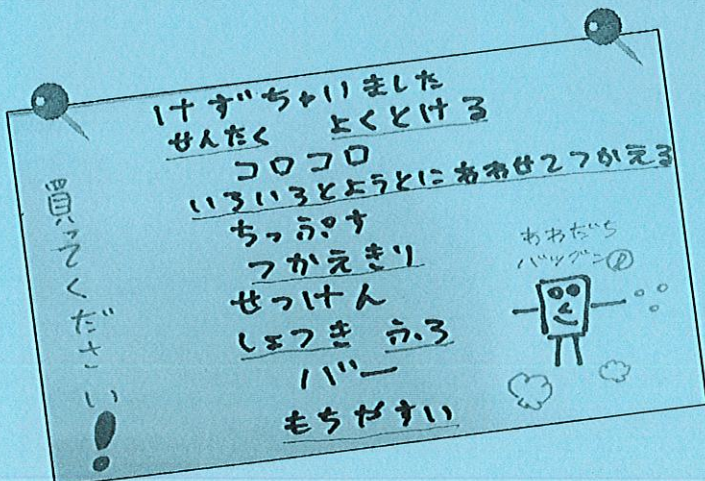 けずちゃいました
せんたく よくとける
コロコロ
いろいろとようとにあわせてつかえる
ちっぷす
つかえきり
せっけん
しょつき ふろ
バー
もちやすい
買ってください!
あわだち
バツグン